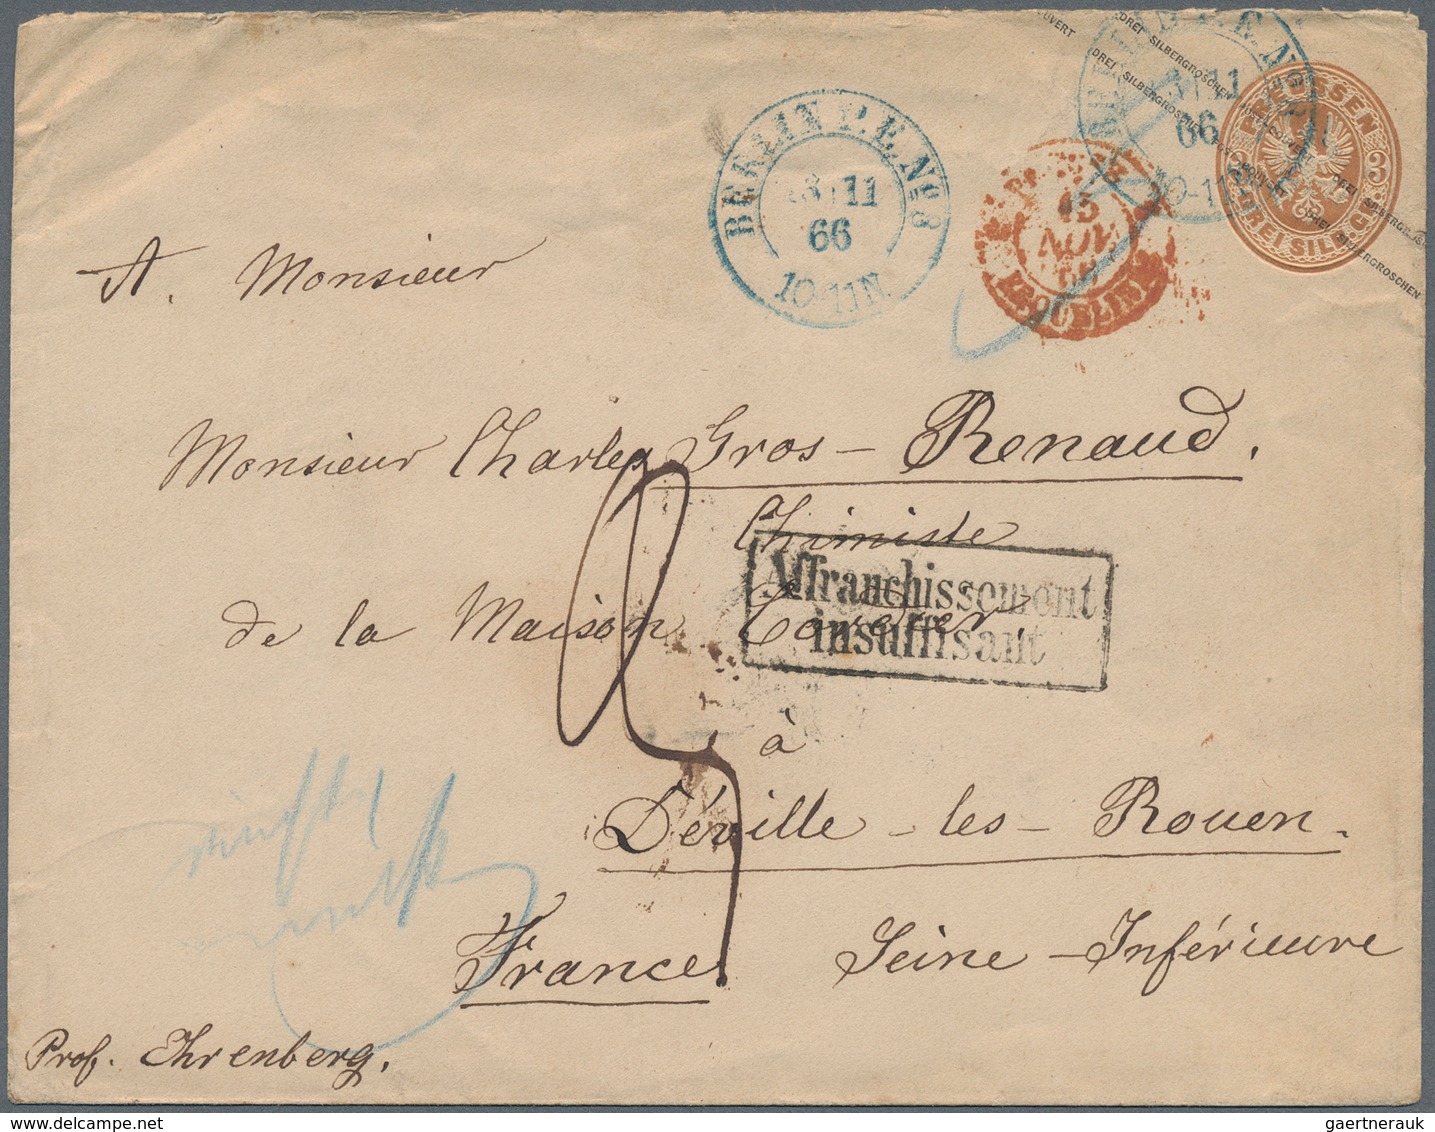 BERLIN P.E. No 8
11
66
10-11N
11
66
10-11
PREUSSEN
3 3
DREI SILB. GR.
DREI SILBERGROSCHEN
DREI SILBERGROSCHEN
NOV.
A. Monsieur
Monsieur Charles Gros-Renaud.
Chimiste
de la Maison
Affranchissement
insuffisant
à
Déville-les-Rouen.
France. Seine-Inférieure
Prof. Ehrenberg.
gaertnerauk @ delcampe.net